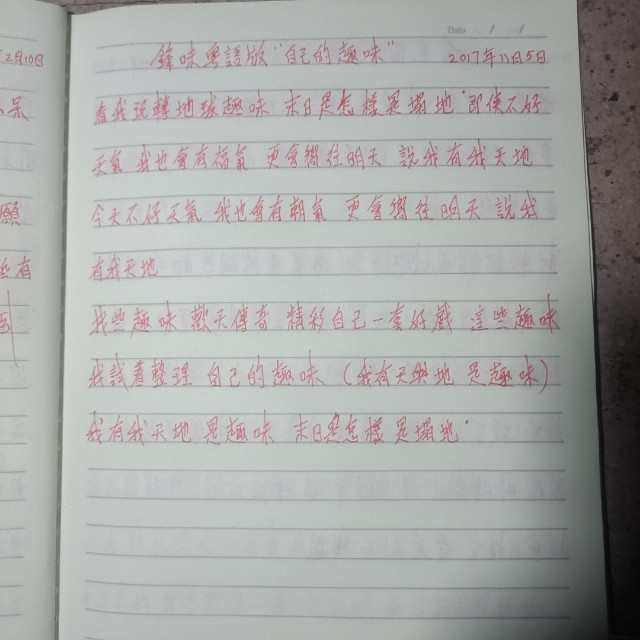 年2月10日
鋒味粵語版“自己的趣味” 2017年11月5日
Date
看我現轉地球趣味 末日是怎樣是塌地 即使不好
天氣 我也會有福氣 更會嚮往明天 說我有我天地
願
今天不好天氣 我也會有朝氣 更會嚮往明天 說我
有
有我天地
找些趣味 歡天傳奇 精彩自己一套好戲 這些趣味
我試着整理 自己的趣味 (我有天與地 是趣味)
我有我天地 是趣味 末日是怎樣是塌地